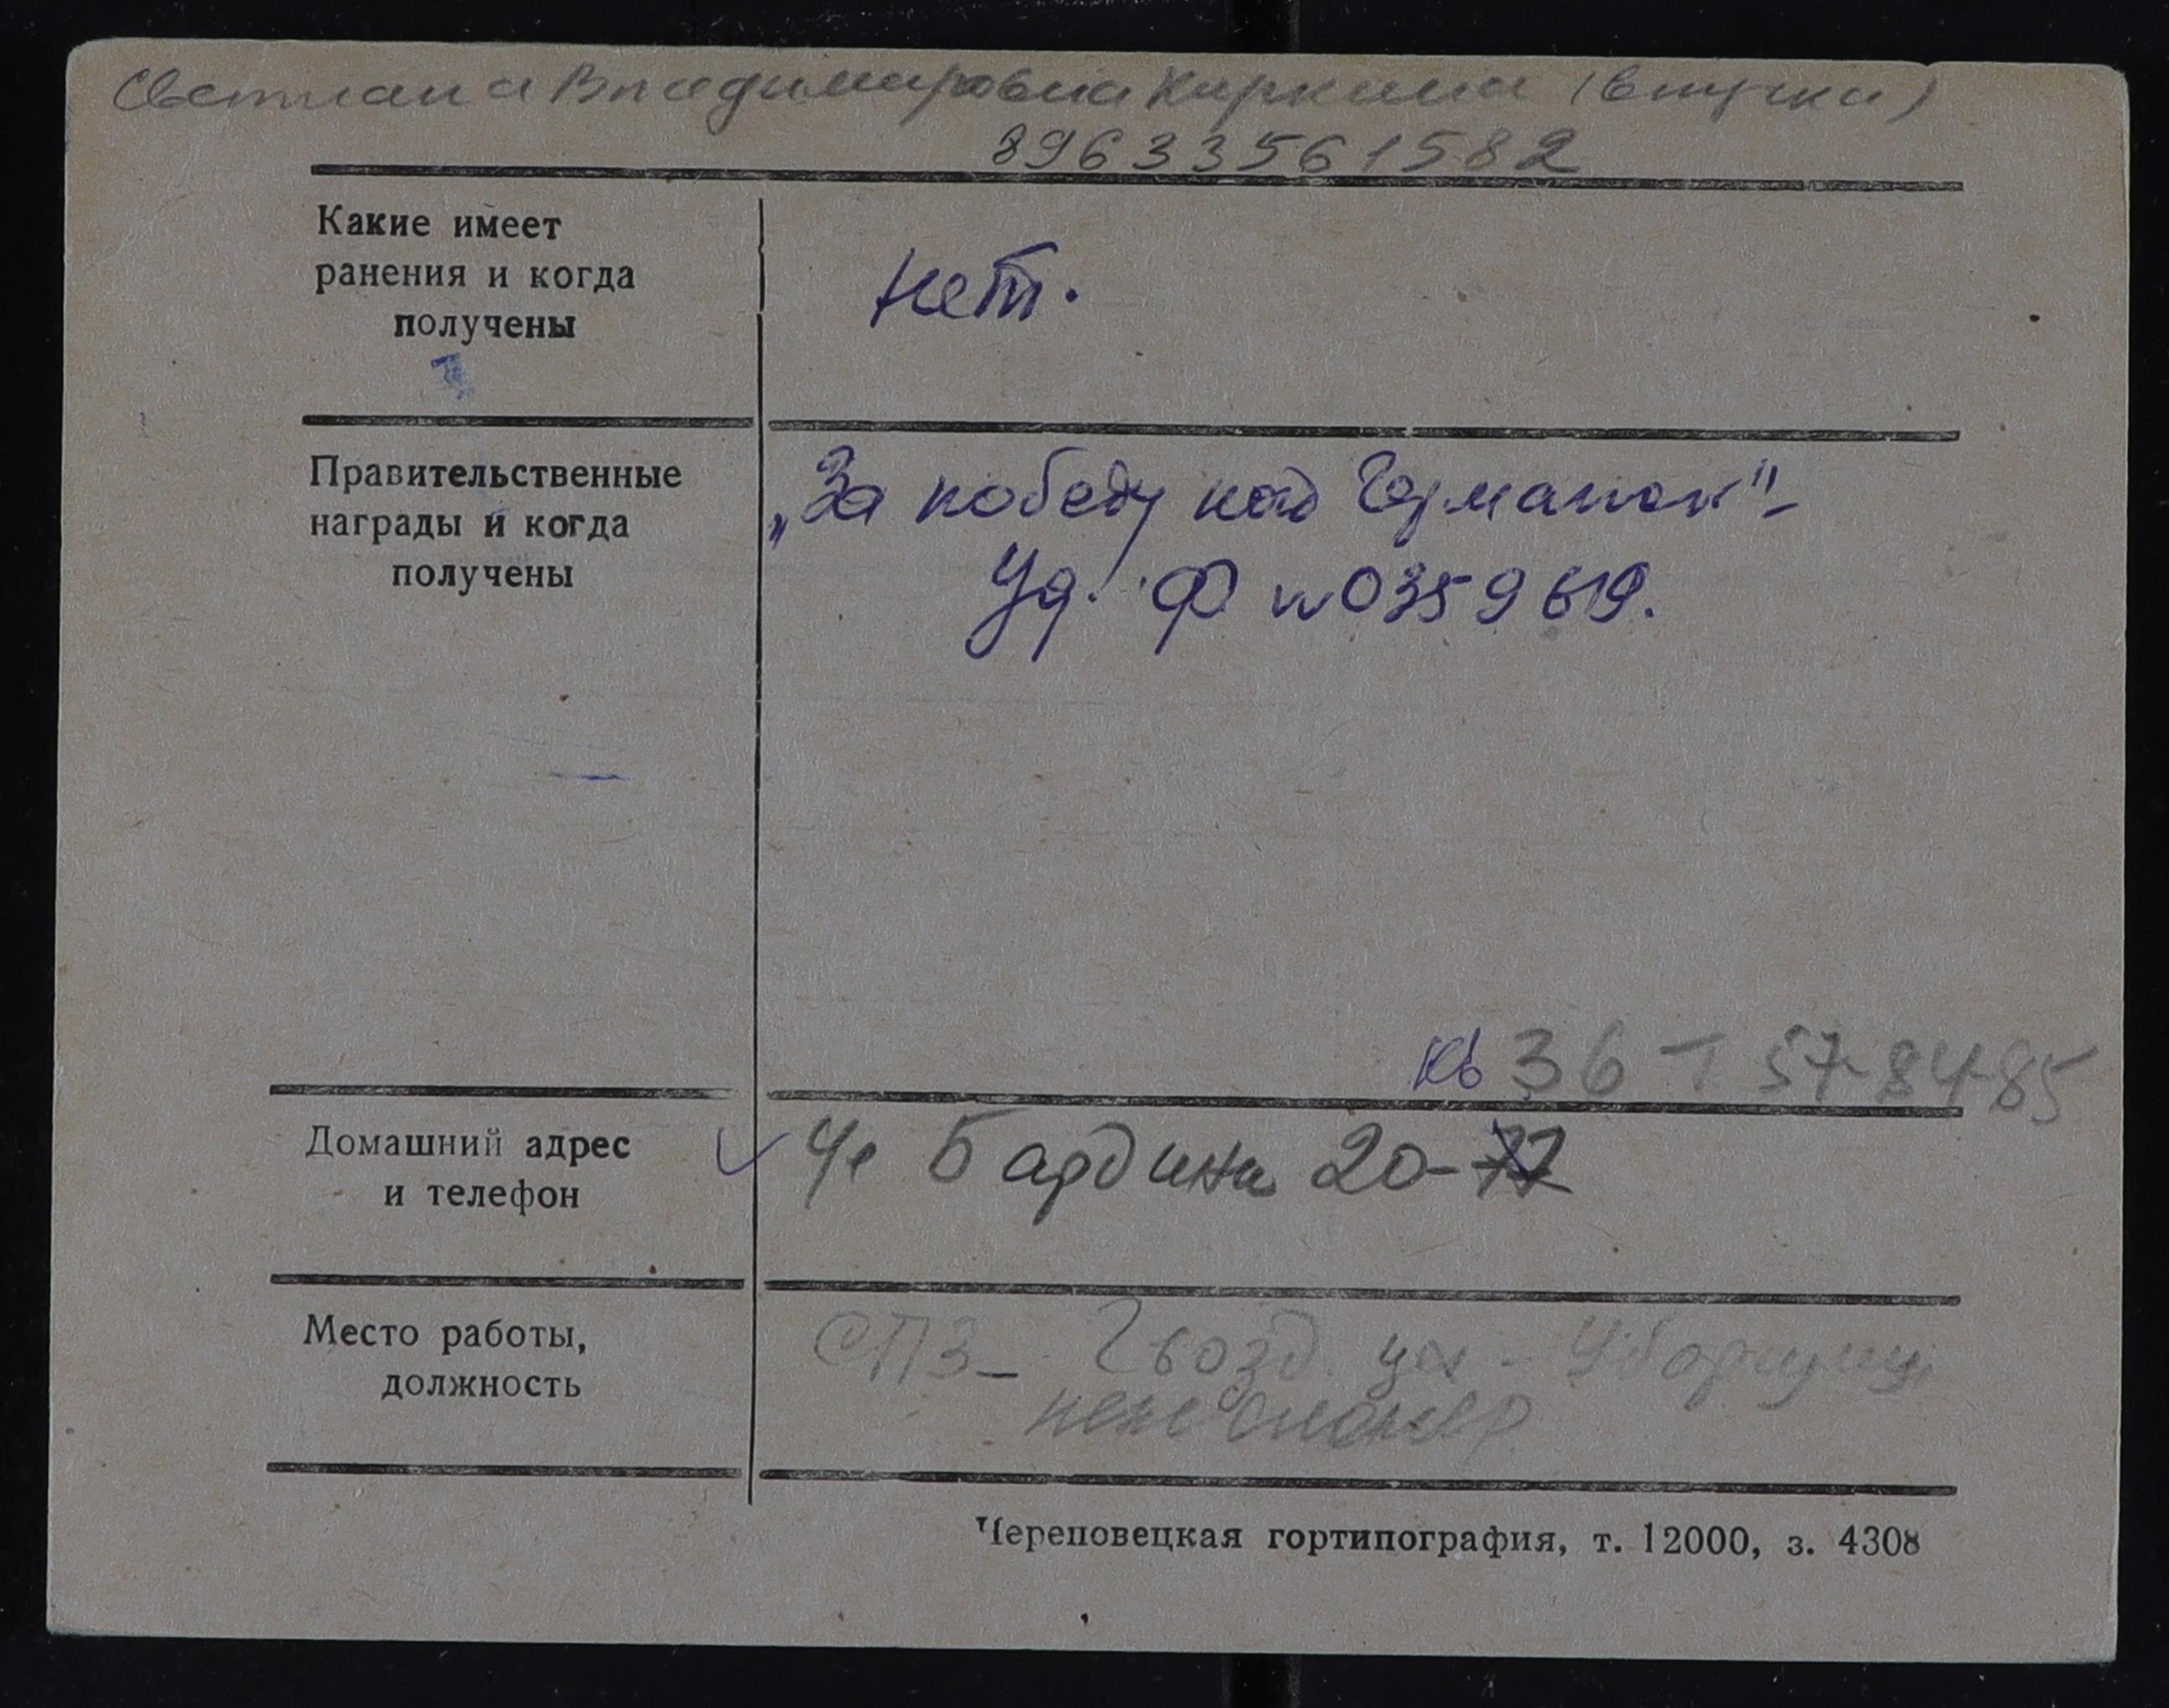 Светлана Владимировна Киркина (внучка)
89633561582
Какие имеет
ранения и когда
получены
нет.
Правительственные
награды и когда
получены
„За победу над Германией"-
Уд. Ф №0359619.
кв 36 Т 57-84-85
Домашний адрес
и телефон
Ул Бардина 20-
Место работы,
должность
СПЗ- Гвозд. цех - Уборщица
пенсионер
Череповецкая гортипография, т. 12000, з. 4308